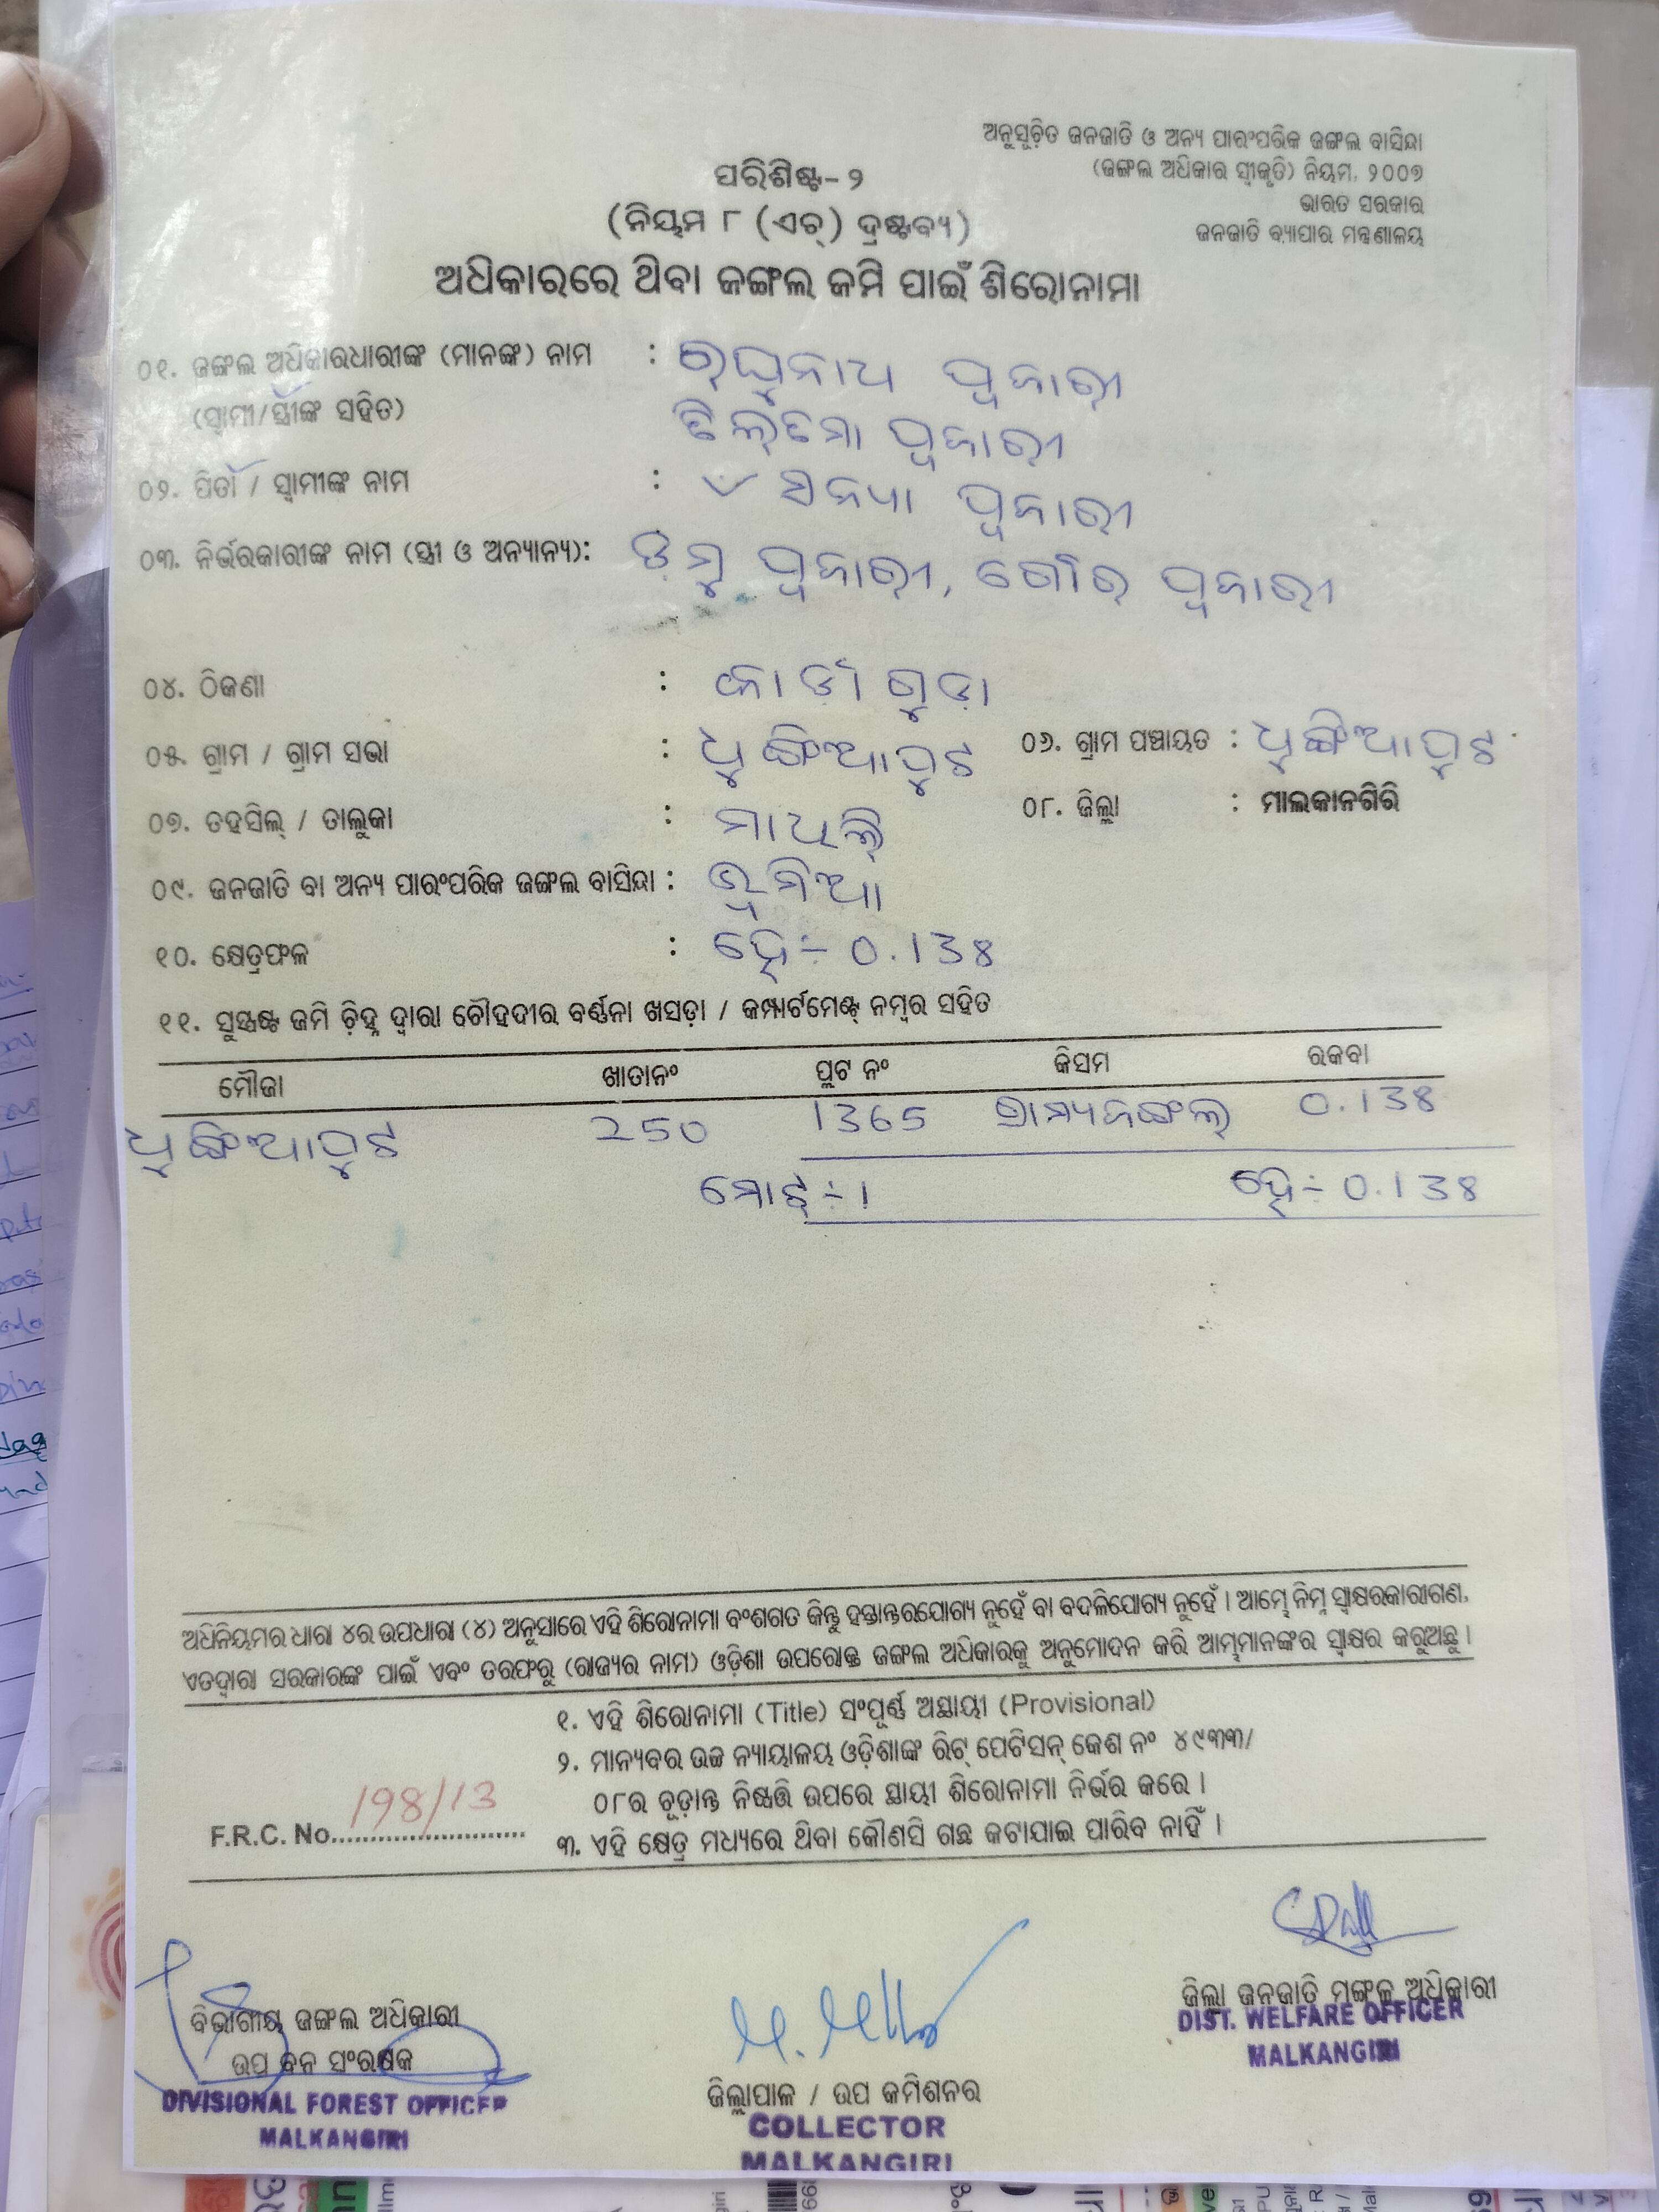 ଅନୁସୂଚିତ ଜନଜାତି ଓ ଅନ୍ୟ ପାରଂପରିକ ଜଙ୍ଗଲ ବାସିନ୍ଦା
(ଜଙ୍ଗଲ ଅଧିକାର ସ୍ୱୀକୃତି) ନିୟମ, ୨୦୦୭
ଭାରତ ସରକାର
ଜନଜାତି ବ୍ୟାପାର ମନ୍ତ୍ରଣାଳୟ
ପରିଶିଷ୍ଟ- ୨
(ନିୟମ ୮ (ଏଚ୍) ଦ୍ରଷ୍ଟବ୍ୟ)
ଅଧିକାରରେ ଥିବା ଜଙ୍ଗଲ ଜମି ପାଇଁ ଶିରୋନାମା
୦୧. ଜଙ୍ଗଲ ଅଧିକାରଧାରୀଙ୍କ (ମାନଙ୍କ) ନାମ : ରଘୁନାଥ ପୂଜାରୀ
(ସ୍ୱାମୀ/ସ୍ତ୍ରୀଙ୍କ ସହିତ) ତିଲ୍ତମା ପୂଜାରୀ
୦୨. ପିତା / ସ୍ୱାମୀଙ୍କ ନାମ : ପୂଜାରୀ
୦୩. ନିର୍ଭରକାରୀଙ୍କ ନାମ (ସ୍ତ୍ରୀ ଓ ଅନ୍ୟାନ୍ୟ): ଡମୁ ପୂଜାରୀ, ଗୌର ପୂଜାରୀ
୦୪. ଠିକଣା :
୦୫. ଗ୍ରାମ / ଗ୍ରାମ ସଭା : ଧୁଙ୍ଗିଆପୁଟ ୦୬. ଗ୍ରାମ ପଞ୍ଚାୟତ : ଧୁଙ୍ଗିଆପୁଟ
୦୭. ତହସିଲ୍ / ତାଲୁକା : ମାଥିଲି ୦୮. ଜିଲ୍ଲା : ମାଲକାନଗିରି
୦୯. ଜନଜାତି ବା ଅନ୍ୟ ପାରଂପରିକ ଜଙ୍ଗଲ ବାସିନ୍ଦା : ଭୂମିଆ
୧୦. କ୍ଷେତ୍ରଫଳ : ହେ÷ 0.138
୧୧. ସୁସ୍ପଷ୍ଟ ଜମି ଚିହ୍ନ ଦ୍ୱାରା ଚୌହଦୀର ବର୍ଣ୍ଣନା ଖସଡ଼ା / କମ୍ପାର୍ଟମେଣ୍ଟ୍ ନମ୍ବର ସହିତ
ମୌଜା ଖାତାନଂ ପ୍ଲଟ ନଂ କିସମ ରକବା
ଧୁଙ୍ଗିଆପୁଟ 250 1365 ଗ୍ରାମ୍ୟଜଙ୍ଗଲ୍ 0.138
ମୋଟ୍ ÷ 1 ହେ÷ 0.138
ଅଧିନିୟମର ଧାରା ୪ର ଉପଧାରା (୪) ଅନୁସାରେ ଏହି ଶିରୋନାମା ବଂଶଗତ କିନ୍ତୁ ହସ୍ତାନ୍ତରଯୋଗ୍ୟ ନୁହେଁ ବା ବଦଳିଯୋଗ୍ୟ ନୁହେଁ । ଆମ୍ଭେ ନିମ୍ନ ସ୍ୱାକ୍ଷରକାରୀଗଣ,
ଏତଦ୍ୱାରା ସରକାରଙ୍କ ପାଇଁ ଏବଂ ତରଫରୁ (ରାଜ୍ୟର ନାମ) ଓଡ଼ିଶା ଉପରୋକ୍ତ ଜଙ୍ଗଲ ଅଧିକାରକୁ ଅନୁମୋଦନ କରି ଆମ୍ଭମାନଙ୍କର ସ୍ୱାକ୍ଷର କରୁଅଛୁ ।
୧. ଏହି ଶିରୋନାମା (Title) ସଂପୂର୍ଣ୍ଣ ଅସ୍ଥାୟୀ (Provisional)
୨. ମାନ୍ୟବର ଉଚ୍ଚ ନ୍ୟାୟାଳୟ ଓଡ଼ିଶାଙ୍କ ରିଟ୍ ପେଟିସନ୍ କେଶ ନଂ ୪୯୩୩/
୦୮ର ଚୂଡ଼ାନ୍ତ ନିଷ୍ପତ୍ତି ଉପରେ ସ୍ଥାୟୀ ଶିରୋନାମା ନିର୍ଭର କରେ ।
F.R.C. No. 198/13
୩. ଏହି କ୍ଷେତ୍ର ମଧ୍ୟରେ ଥିବା କୌଣସି ଗଛ କଟାଯାଇ ପାରିବ ନାହିଁ ।
ଜିଲ୍ଲା ଜନଜାତି ମଙ୍ଗଳ ଅଧିକାରୀ
DIST. WELFARE OFFICER
MALKANGIRI
ବିଭାଗୀୟ ଜଙ୍ଗଲ ଅଧିକାରୀ
ଉପ ବନ ସଂରକ୍ଷକ
DIVISIONAL FOREST OFFICER
MALKANGIRI
ଜିଲ୍ଲାପାଳ / ଉପ କମିଶନର
COLLECTOR
MALKANGIRI